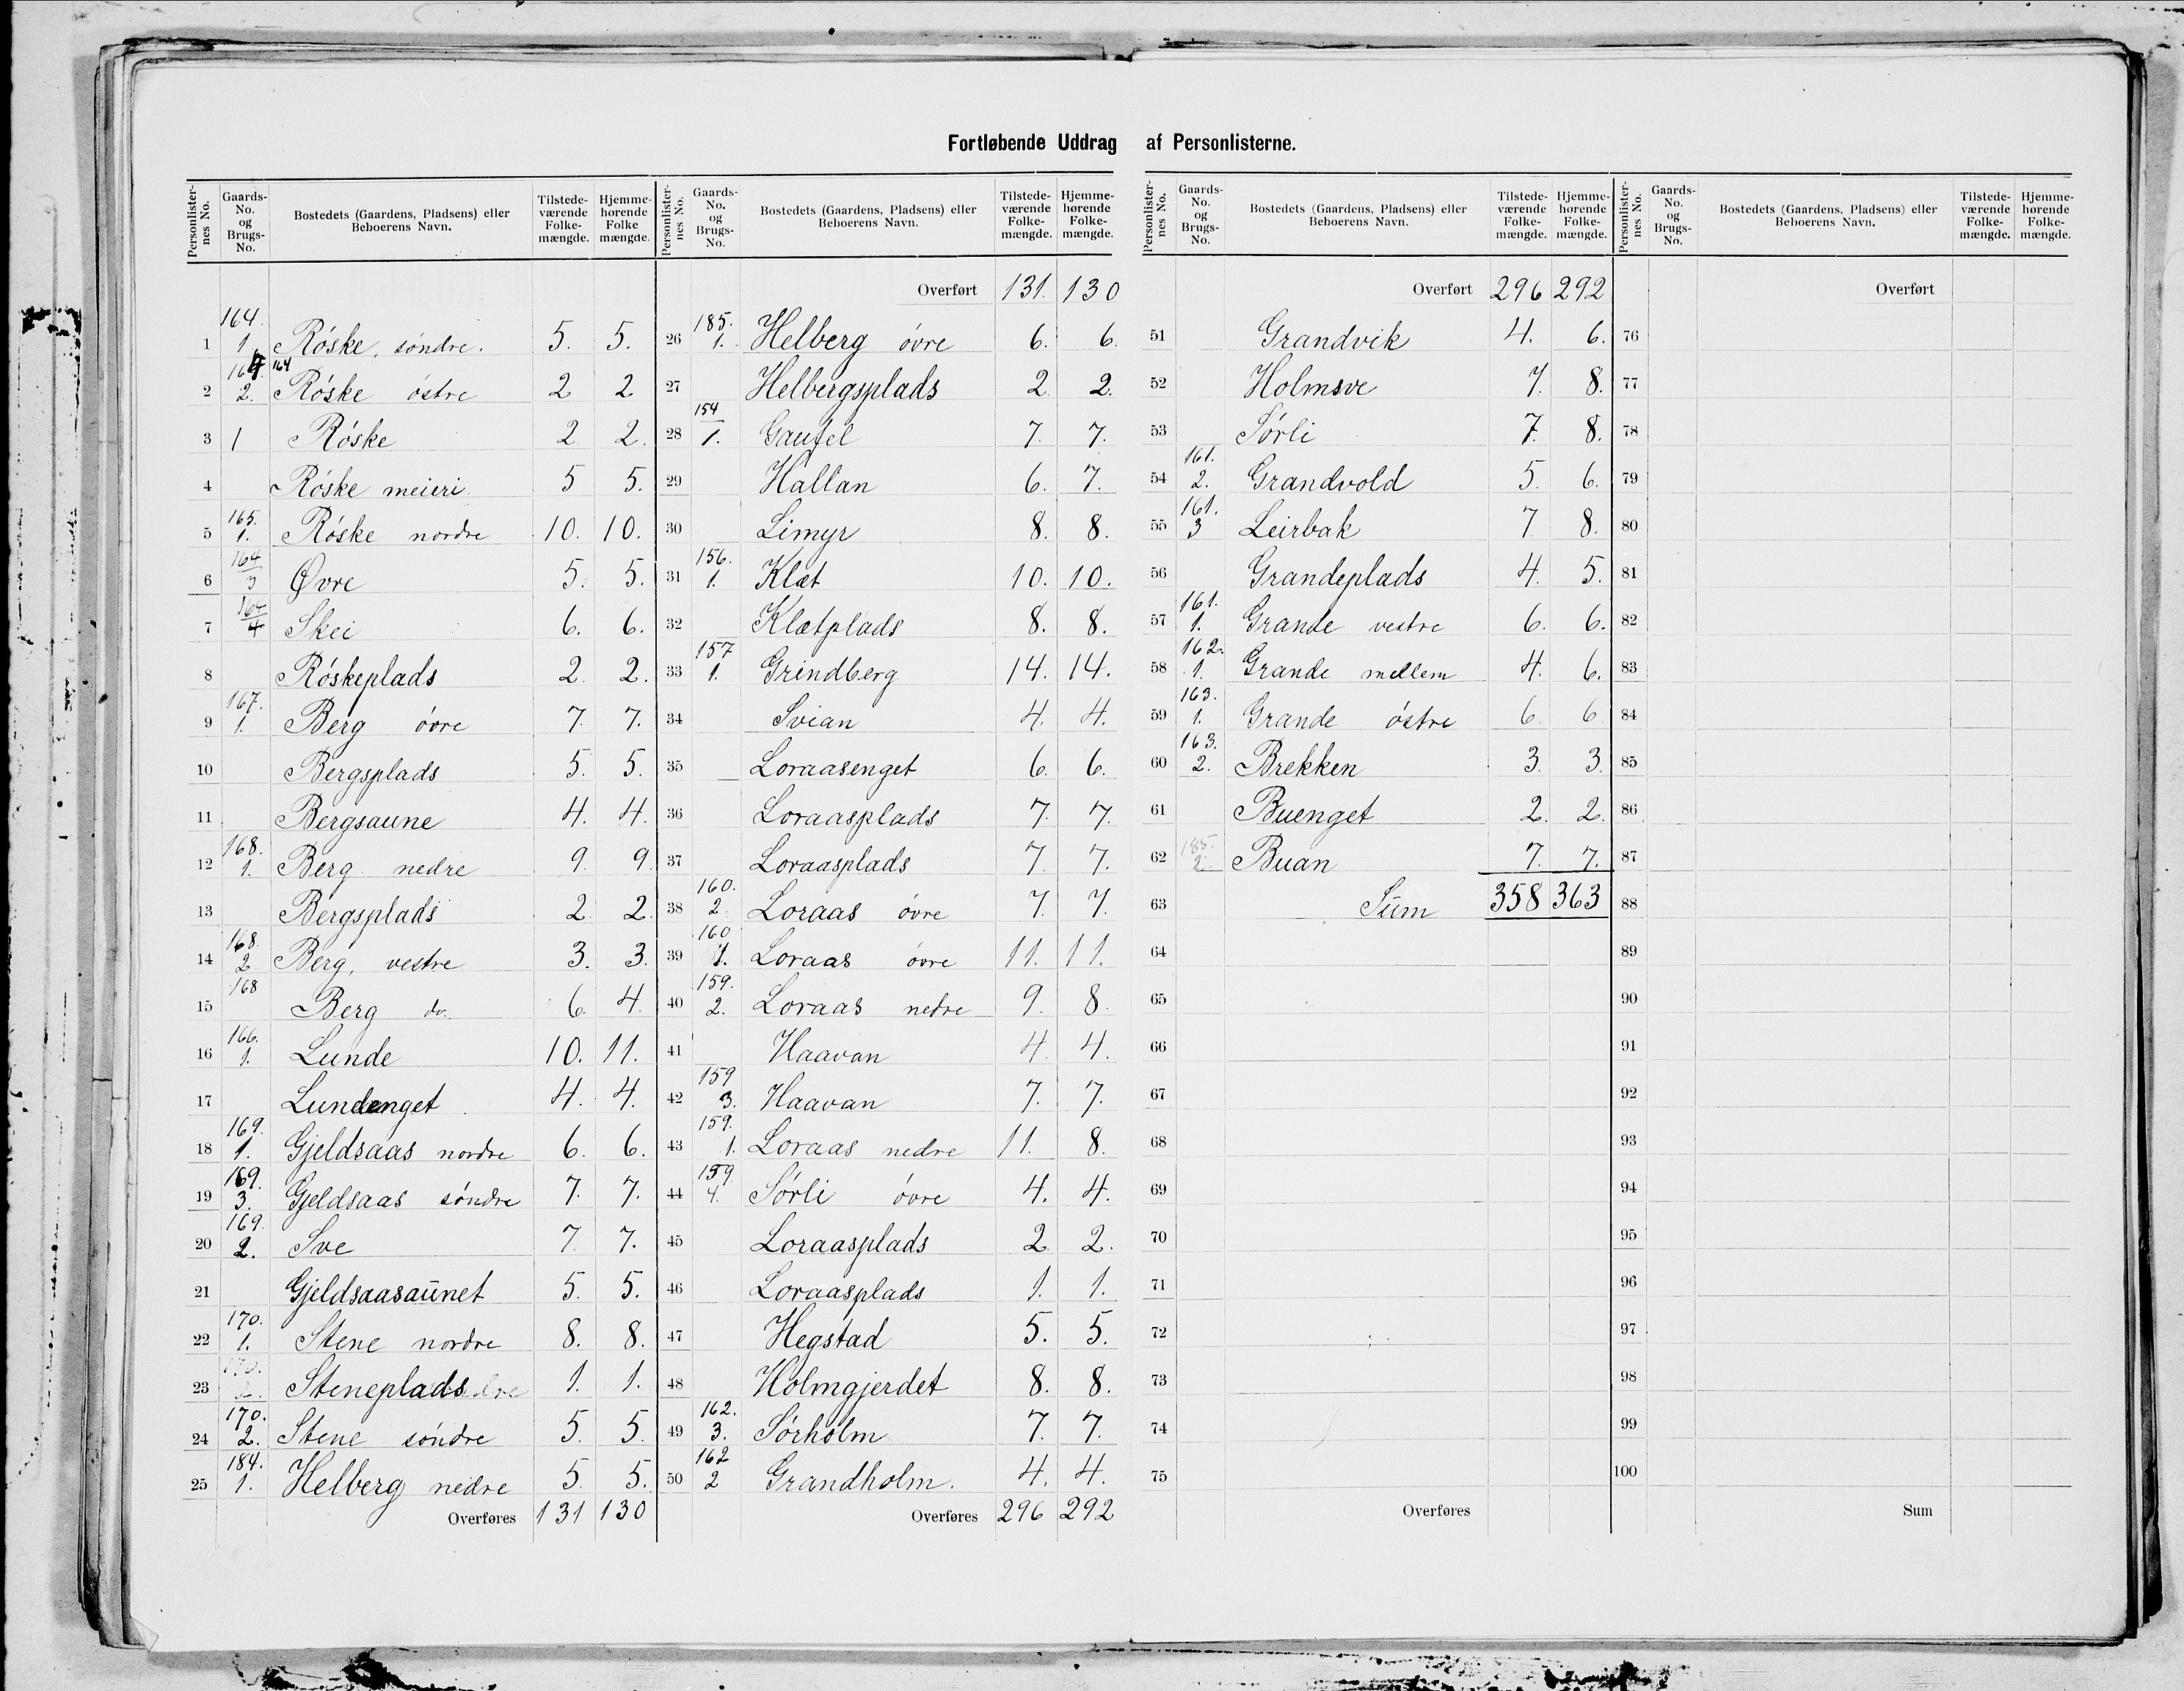 Fortløbende Uddrag af Personlisterne.
Personlister-nes No. | Gaards-No. og Brugs-No. | Bostedets (Gaardens, Pladsens) eller Beboerens Navn. | Tilstede-værende Folke-mængde. | Hjemme-hørende Folke mængde.
1 | 164. 1. | Röske, söndre. | 5. | 5.
2 | 164. 2. | 164 Röske östre | 2 | 2
3 | 1 | Röske | 2 | 2.
4 | Röske meieri. | 5 | 5.
5 | 165. 1. | Röske nordre | 10. | 10.
6 | 164/3 | Øvre | 5. | 5.
7 | 164/4 | Skei | 6. | 6.
8 | Röskeplads | 2. | 2.
9 | 167. 1. | Berg övre | 7. | 7.
10 | Bergsplads | 5. | 5.
11 | Bergsaune | 4. | 4.
12 | 168. 1. | Berg nedre | 9. | 9
13 | Bergsplads | 2 | 2
14 | 168. 2 | Berg, vestre | 3. | 3.
15 | 168 | Berg do. | 6. | 4.
16 | 166. 1. | Lunde | 10. | 11.
17 | Lundenget | 4. | 4.
18 | 169. 1. | Gjeldsaas nordre | 6. | 6.
19 | 169. 3. | Gjeldsaas söndre | 7. | 7.
20 | 169. 2. | Sve | 7. | 7.
21 | Gjeldsaasaunet | 5. | 5.
22 | 170. 1. | Stene nordre | 8. | 8.
23 | 170. | Steneplads | 1. | 1.
24 | 170. 2. | Stene söndre | 5. | 5.
25 | 184. 1. | Helberg nedre | 5. | 5.
Overføres | 131 | 130
Personlister-nes No. | Gaards-No. og Brugs-No. | Bostedets (Gaardens, Pladsens) eller Beboerens Navn. | Tilstede-værende Folke-mængde. | Hjemme-hørende Folke-mængde.
Overført | 131. | 130
26 | 185. 1. | Helberg övre | 6. | 6.
27 | Helbergsplads | 2. | 2.
28 | 154/1. | Gaufel | 7. | 7.
29 | Hallan | 6. | 7.
30 | Limyr | 8. | 8.
31 | 156. 1. | Klæt | 10. | 10.
32 | Klætplads | 8. | 8.
33 | 157 1. | Grindberg | 14. | 14.
34 | Svian | 4. | 4.
35 | Loraasenget | 6. | 6.
36 | Loraasplads | 7. | 7.
37 | Loraasplads | 7. | 7.
38 | 160. 2 | Loraas övre | 7. | 7.
39 | 160 1. | Loraas övre | 11. | 11.
40 | 159. 2. | Loraas nedre | 9. | 8.
41 | Haavan | 4. | 4.
42 | 159 3. | Haavan | 7. | 7.
43 | 159. 1. | Loraas nedre | 11. | 8.
44 | 159 4. | Sörli övre | 4. | 4.
45 | Loraasplads | 2. | 2.
46 | Loraasplads | 1. | 1.
47 | Hegstad | 5. | 5.
48 | Holmgjerdet | 8. | 8.
49 | 162. 3. | Sörholm | 7. | 7.
50 | 162 2 | Grandholm. | 4. | 4.
Overføres | 296 | 292
Personlister-nes No. | Gaards-No. og Brugs-No. | Bostedets (Gaardens, Pladsens) eller Beboerens Navn. | Tilstede-værende Folke-mængde. | Hjemme-hørende Folke-mængde.
Overført | 296 | 292
51 | Grandvik | 4. | 6.
52 | Holmsve | 7. | 8.
53 | Sörli | 7. | 8.
54 | 161. 2. | Grandvold | 5. | 6.
55 | 161. 3 | Leirbak | 7. | 8.
56 | Grandeplads | 4. | 5.
57 | 161. 1. | Grande vestre | 6. | 6.
58 | 162. 1. | Grande mellem | 4. | 6.
59 | 163. 1. | Grande östre | 6. | 6
60 | 163. 2. | Brekken | 3. | 3.
61 | Buenget | 2. | 2.
62 | 185. 2. | Buan | 7. | 7.
63 | Sum | 358 | 363
64
65
66
67
68
69
70
71
72
73
74
75
Overføres
Personlister-nes No. | Gaards-No. og Brugs-No. | Bostedets (Gaardens, Pladsens) eller Beboerens Navn. | Tilstede-værende Folke-mængde. | Hjemme-hørende Folke-mængde.
Overført
76
77
78
79
80
81
82
83
84
85
86
87
88
89
90
91
92
93
94
95
96
97
98
99
100
Sum